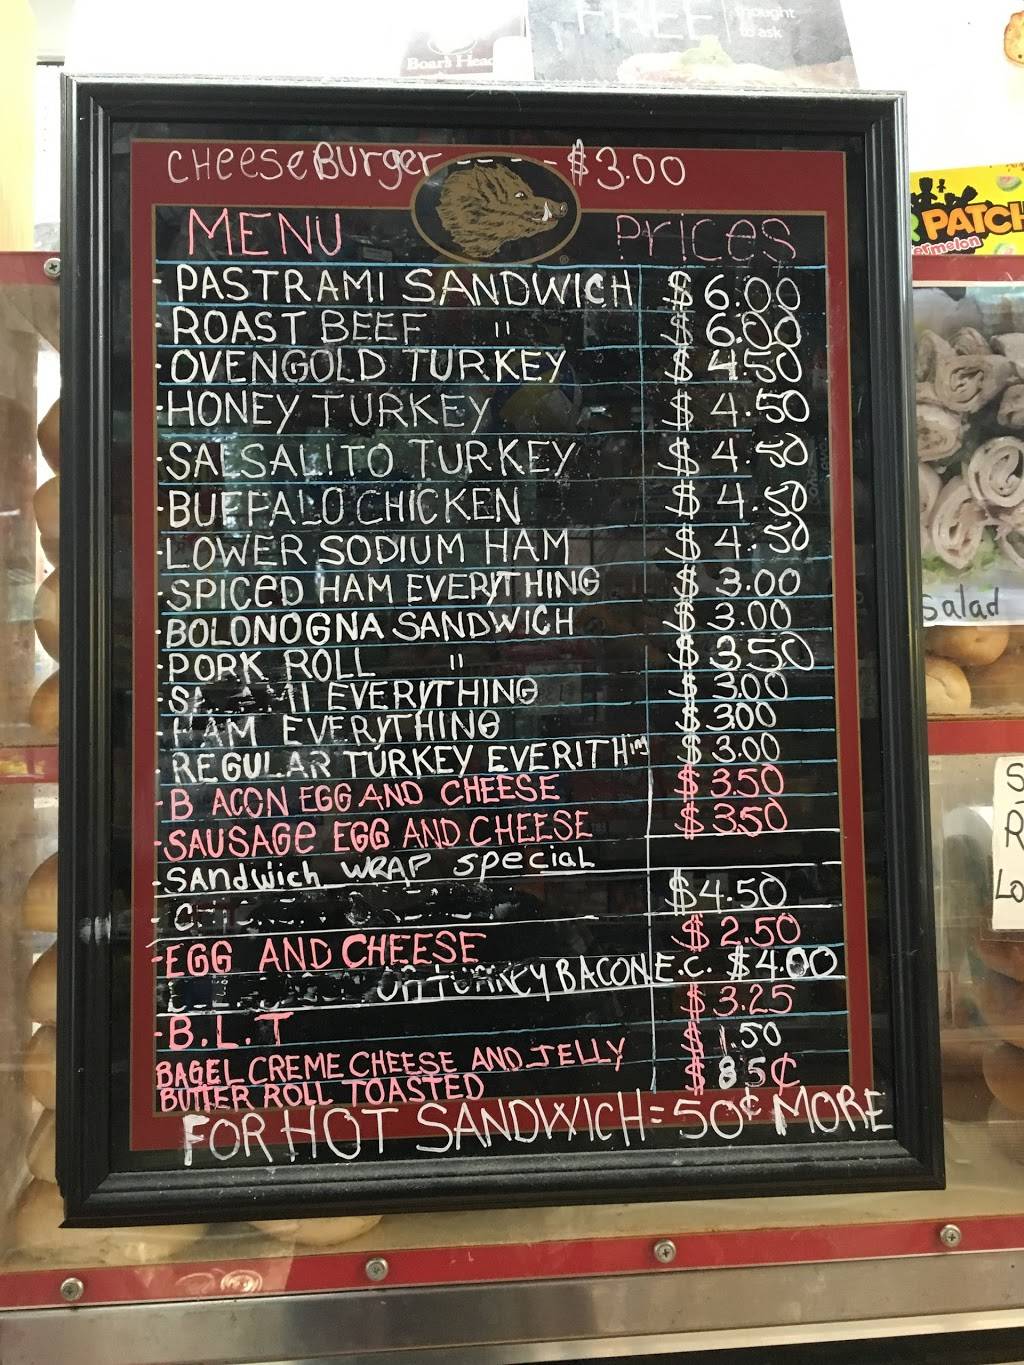 Boar's Head
FREE
thought
to ask
CHeeseBurger - - - - $3.00
MENU Prices
PATCH
- PASTRAMI SANDWICH $ 6.00
- ROAST BEEF " $ 6.00
- OVENGOLD TURKEY $ 4.50
- HONEY TURKEY $ 4.50
- SALSALITO TURKEY $ 4.50
- BUFFALO CHICKEN $ 4.50
- LOWER SODIUM HAM $ 4.50
- SPICED HAM EVERYTHING $ 3.00
- BOLONOGNA SANDWICH $ 3.00
- PORK ROLL " $ 3.50
- EVERYTHING $ 3.00
- HAM EVERYTHING $ 3.00
- REGULAR TURKEY EVERITHing $ 3.00
- BACON EGG AND CHEESE $ 3.50
- SAUSAGe EGG AND CHEESE $ 3.50
- SANdwich WRAP special
$4.50
- EGG AND CHEESE $ 2.50
BACON E.C. $4.00
- B.L.T $ 3.25
BAGEL CREME CHEESE AND JELLY $ 1.50
BUTTER ROLL TOASTED $ 85¢
FOR HOT SANDWICH = 50¢ MORE
salad